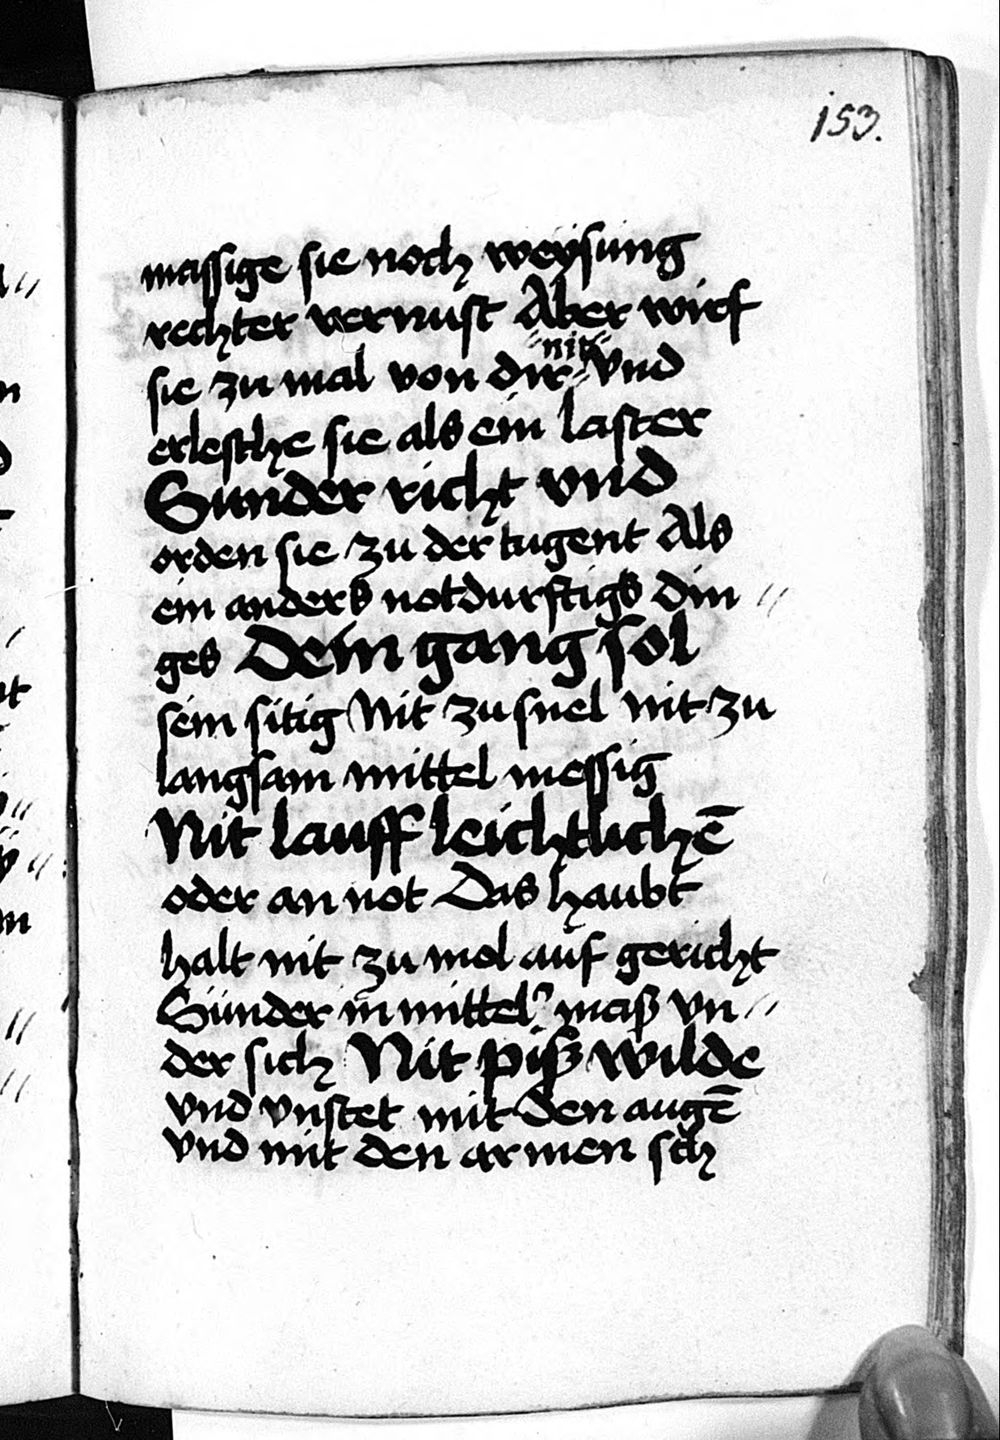 153.
massige sie noch weysung
rechter vernuft Aber wirf
nit
sie zu mal von dir vnd
erlesche sie als ein laster
Sunder richt vnd
orden sie zu der tugent Als
ein anders notdurftigs din〃
ges Dein gang sol
sein sitig Nit zu snel nit zu
langsam mittel messig
Nit lauff leichtlichē
oder an not Das haubt
halt nit zu mol auf gericht
Sünder in mittel maß vn〃
der sich Nit piß wilde
vnd vnstet mit den augē
vnd mit den armen sch